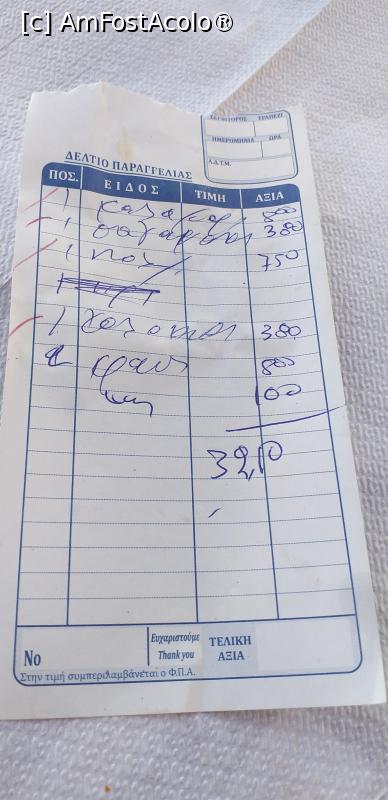 [c] AmFostAcolo®
ΣΕΡΒΙΤΟΡΟΣ ΤΡΑΠΕΖΙ
ΗΜΕΡΟΜΗΝΙΑ ΩΡΑ
Α.Φ.Τ.Μ.
ΔΕΛΤΙΟ ΠΑΡΑΓΓΕΛΙΑΣ
ΠΟΣ. ΕΙΔΟΣ ΤΙΜΗ ΑΞΙΑ
1 καλαμαρι 800
1 380
1 750
1 380
800
100
32,10
No Ευχαριστούμε Thank you ΤΕΛΙΚΗ ΑΞΙΑ
Στην τιμή συμπεριλαμβάνεται ο Φ.Π.Α.